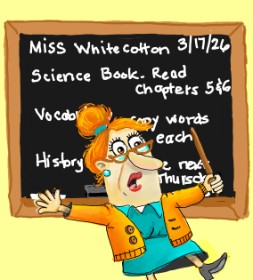 Miss Whitecotton 3/17/26
Science Book. Read
Chapters 5&6
Vocab copy words
each
History next
Thursday